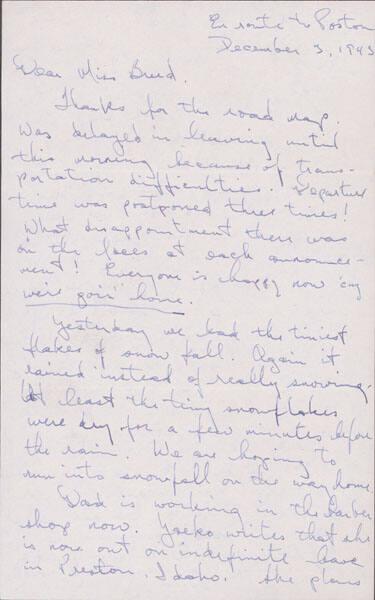 En route to Poston
December 3, 1943
Dear Miss Breed,
Thanks for the road map.
Was delayed in leaving until
this morning because of trans-
portation difficulties. Departure
time was postponed three times!
What disappointment there was
on the faces at each announce-
ment! Everyone is happy now
we're goin' home.
Yesterday we had the tiniest
flakes of snow fall. Again it
rained instead of really snowing.
At least the tiny snowflakes
were dry for a few minutes before
the rain. We are hoping to
run into snowfall on the way home.
Dad is working in the barber
shop now. Yaeko writes that she
is now out on indefinite leave
in Preston, Idaho. She plans